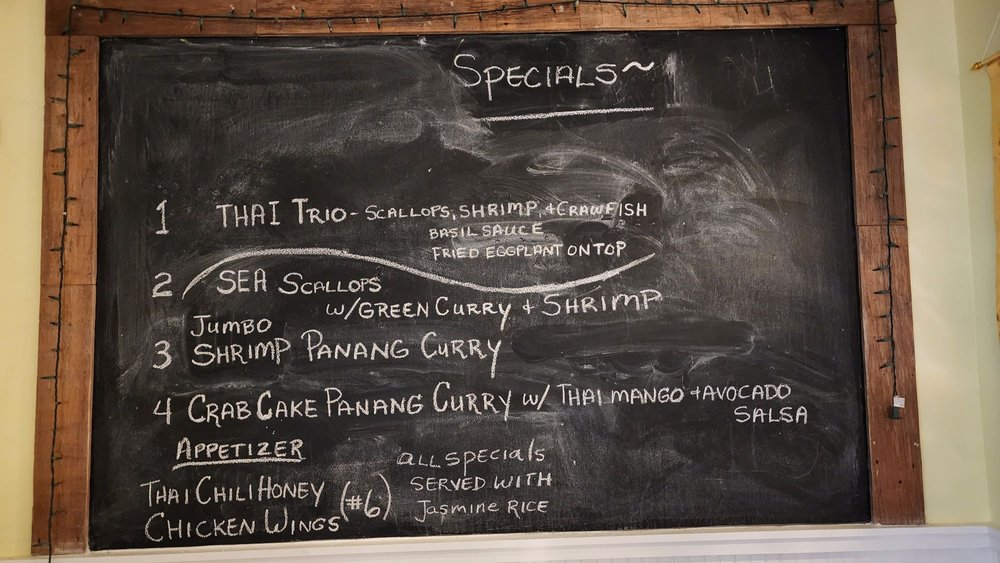 SPECIALS~
1 THAI TRIO - SCALLOPS, SHRIMP, + CRAWFISH
BASIL SAUCE
FRIED EGGPLANT ON TOP
2 SEA SCALLOPS
W/GREEN CURRY + SHRIMP
JUMBO
3 SHRIMP PANANG CURRY
4 CRAB CAKE PANANG CURRY W/ THAI MANGO + AVOCADO
SALSA
APPETIZER
THAI CHILI HONEY (#6)
CHICKEN WINGS
ALL SPECIALS
SERVED WITH
JASMINE RICE